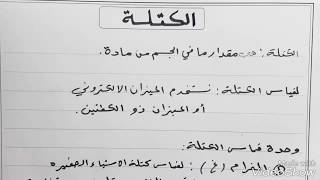 الكتلة
الكتلة: هي مقدار ما في الجسم من مادة.
لقياس الكتلة: نستخدم الميزان الالكتروني
أو الميزان ذو الكفتين.
وحدة قياس الكتلة:
① الغرام (غ): لقياس كتلة الأشياء الصغيرة